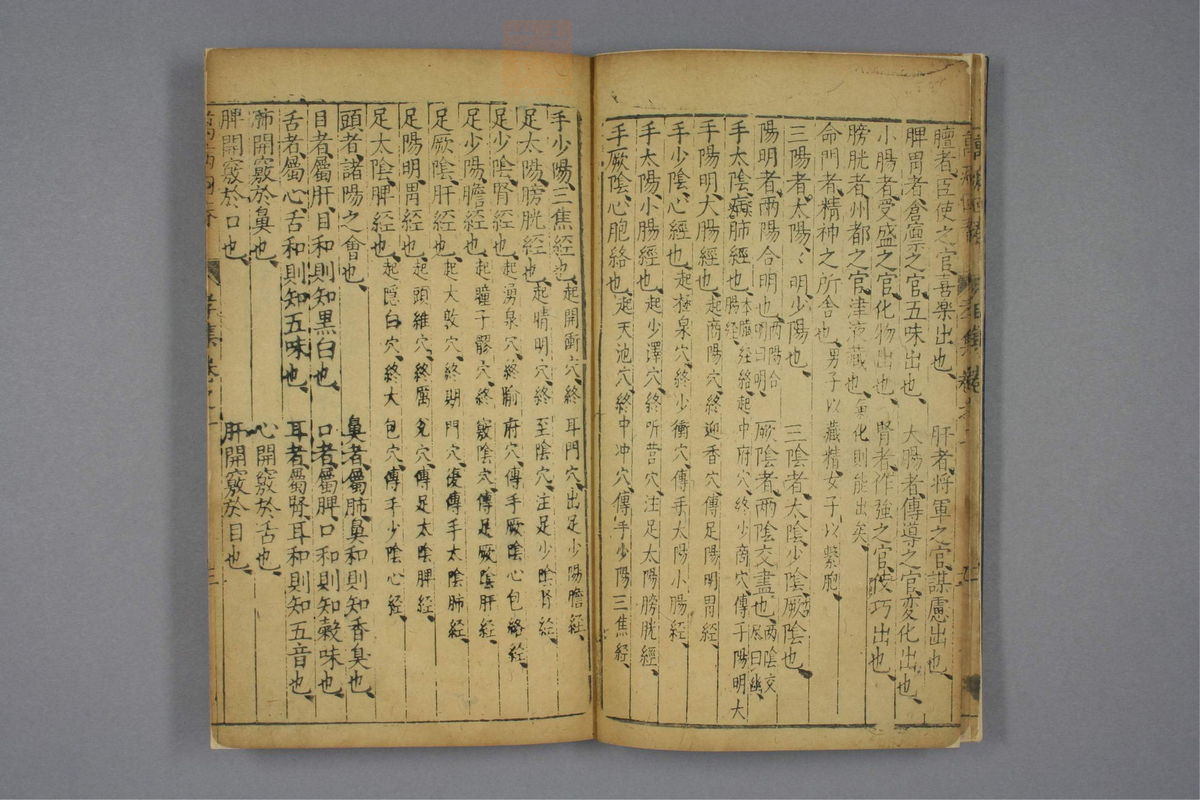 膻者、臣使之官、喜樂出也、 肝者、將軍之官、謀慮出也、
脾胃者、倉廩之官、五味出也、 大腸者、傳導之官、変化出也、
小腸者、受盛之官、化物出也、 腎者、作強之官、技巧出也、
膀胱者、州都之官、津液藏也、氣化則能出矣、
命門者、精神之所舎也、男子以藏精、女子以繫胞、
三陽者、太陽、陽明、少陽也、 三陰者、太陰、少陰、厥陰也、
陽明者、兩陽合明也、兩陽合明曰明、 厥陰者、兩陰交盡也、兩陰交尽曰幽、
手太陰肺経也、本臓経絡、起中府穴、終少商穴、傳手陽明大腸経、
手陽明、大腸経也、起商陽穴、終迎香穴、傳足陽明胃経、
手少陰、心経也、起極泉穴、終少衝穴、傳手太陽小腸経、
手太陽、小腸経也、起少澤穴、終听宮穴、注足太陽膀胱経、
手厥陰、心胞絡也、起天池穴、終中冲穴、傳手少陽三焦経、
手少陽、三焦経也、起関衝穴、終耳門穴、出足少陽膽経、
足太陽、膀胱経也、起睛明穴、終至陰穴、注足少陰腎経、
足少陰、腎経也、起湧泉穴、終腧府穴、傳手厥陰心包絡経、
足少陽、膽経也、起瞳子髎穴、終竅陰穴、傳足厥陰肝経、
足厥陰、肝経也、起大敦穴、終期門穴、復傳手太陰肺経、
足陽明、胃経也、起頭維穴、終厲兌穴、傳足太陰脾経、
足太陰、脾経也、起隠白穴、終大包穴、傳手少陰心経、
頭者、諸陽之會也、 鼻者、屬肺、鼻和則知香臭也、
目者、屬肝、目和則知黒白也、 口者、屬脾、口和則知穀味也、
舌者、屬心、舌和則知五味也、 耳者、屬腎、耳和則知五音也、
肺開竅於鼻也、 心開竅於舌也、
脾開竅於口也、 肝開竅於目也、